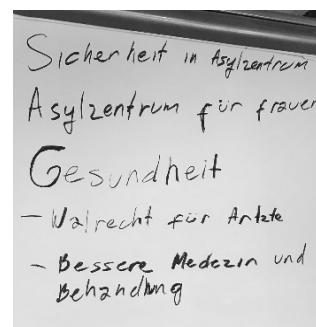 Sicherheit in Asylzentrum
Asylzentrum für frauen
Gesundheit
- Walrecht für Artzte
- Bessere Medezin und
Behandlung